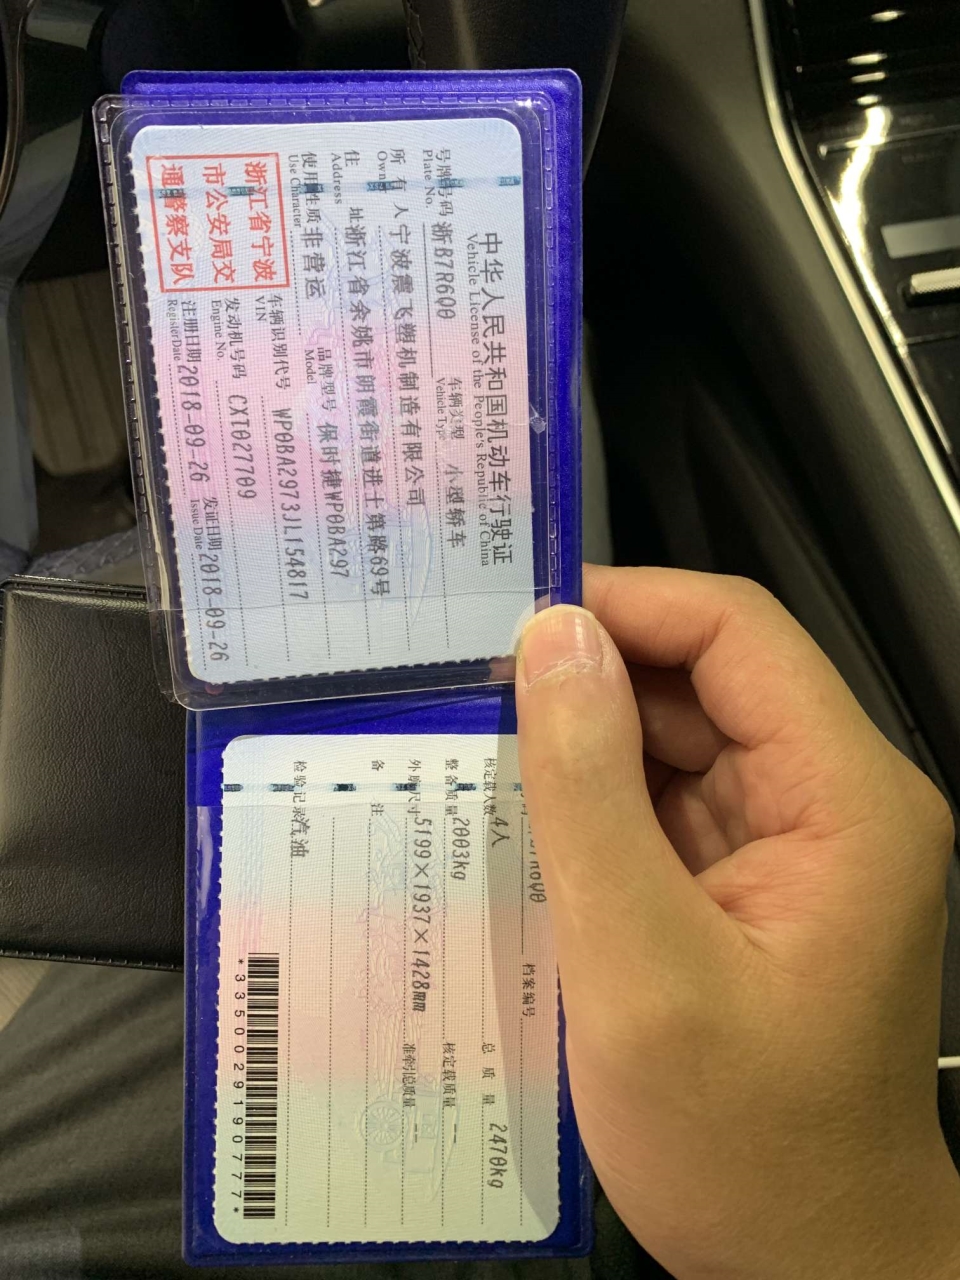 中华人民共和国机动车行驶证
Vehicle License of the People's Republic of China
号牌号码 浙B7R6Q0 车辆类型 小型轿车
Plate No. Vehicle Type
所有人 宁波震飞塑机制造有限公司
Owner
住址 浙江省余姚市朗霞街道进士第路69号
Address
使用性质 非营运 品牌型号 保时捷WP0BA297
Use Character Model
浙江省宁波
市公安局交
通警察支队
车辆识别代号 WP0BA2973JL154817
VIN
发动机号码 CXT027709
Engine No.
注册日期 2018-09-26 发证日期 2018-09-26
Register Date Issue Date
档案编号
核定载人数 4人 总质量 2470kg
整备质量 2003kg 核定载质量 --
外廓尺寸 5199×1937×1428mm 准牵引总质量 --
备注
检验记录 汽油
*3350029190777*